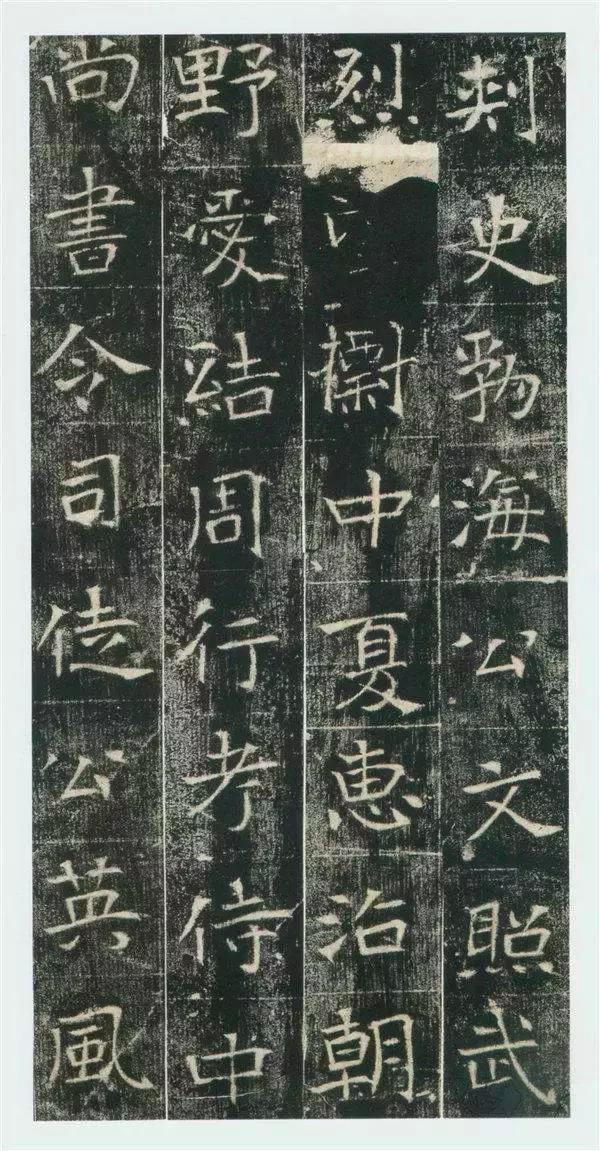 刾史勃海公文照武
烈衡中夏惠洽朝
野愛結周行考侍中
尚書令司徒公英風